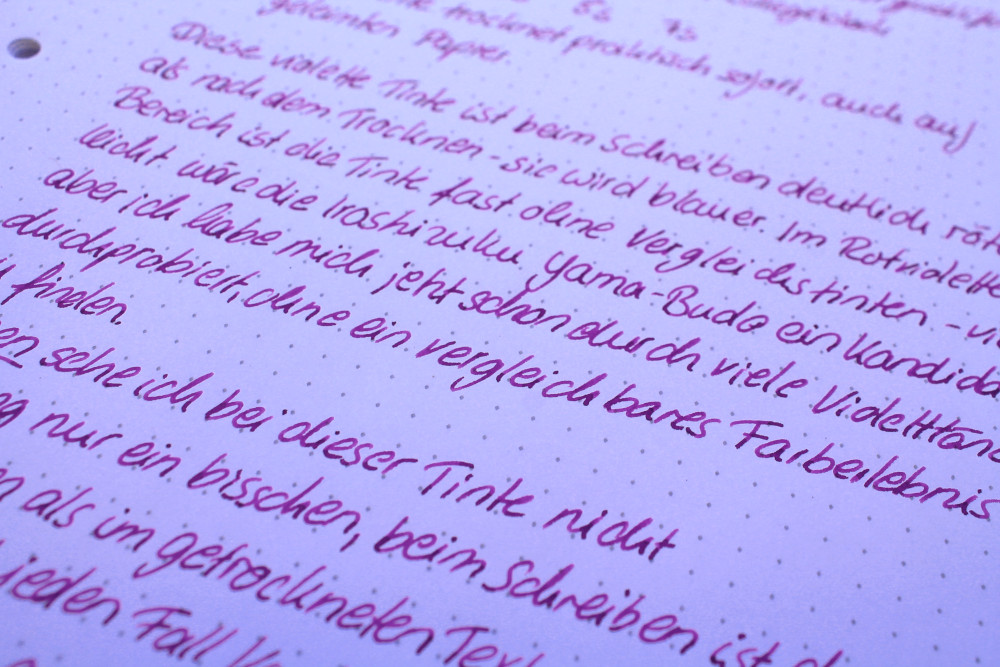 5s 7s
trocknet praktisch sofort, auch auf
geleimten Papier.
Diese violette Tinte ist beim schreiben deutlich
als nach dem Trocknen - sie wird blauer. Im Rotviolette
Bereich ist die Tinte fast ohne Vergleichstinten -
leicht wäre die Iroshizuku Yama-Budo ein Kandida
aber ich habe mich jetzt schon durch viele Violetttöne
durchprobiert, ohne ein vergleichbares Farberlebnis
finden.
sehe ich bei dieser Tinte nicht
nur ein bisschen, beim Schreiben ist
als im getrockneten Text
jeden Fall